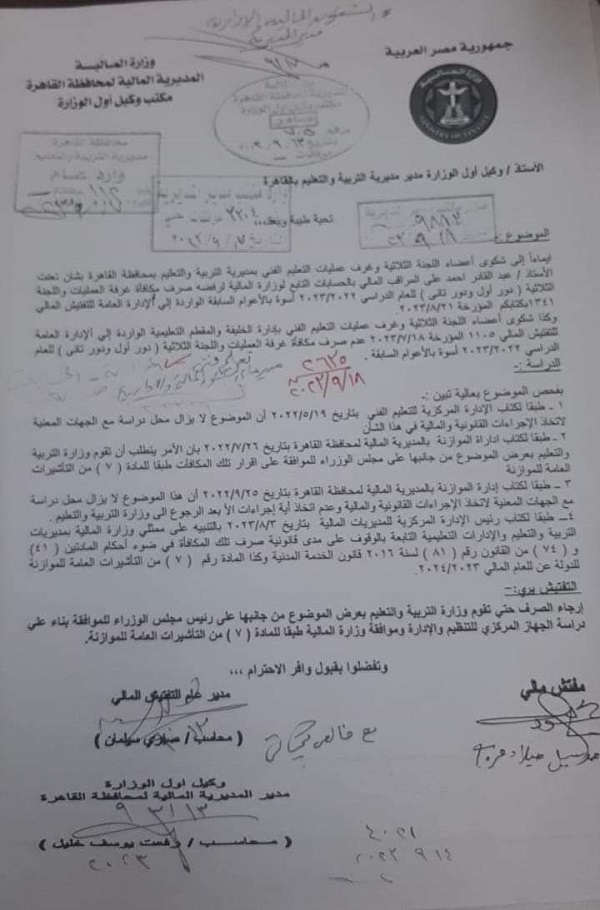 جمهورية مصر العربية
وزارة المالية
المديرية المالية لمحافظة القاهرة
مكتب وكيل أول الوزارة
MINISTRY OF FINANCE
محافظة القاهرة
مديرية التربية والتعليم
وارد عام
الأستاذ / وكيل أول الوزارة مدير مديرية التربية والتعليم بالقاهرة
تحية طيبة وبعد،،،
٣٢٠٤
٩٨٨٣
الموضوع :-
ايماءاً إلى شكوى أعضاء اللجنة الثلاثية وغرف عمليات التعليم الفني بمديرية التربية والتعليم بمحافظة القاهرة بشان تعنت
الأستاذ / عبد القادر احمد على المراقب المالي بالحسابات التابع لوزارة المالية لرفضه صرف مكافأة غرفة العمليات واللجنة
الثلاثية ( دور أول ودور تانى ) للعام الدراسي ٢٠٢٣/٢٠٢٢ أسوة بالأعوام السابقة الواردة إلي الإدارة العامة للتفتيش المالي
١٣٤١ بكتابكم ٢٠٢٣/٨/٢١.
وكذا شكوى أعضاء اللجنة الثلاثية وغرف عمليات التعليم الفني بإدارة الخليفة والمقطم التعليمية الواردة إلي الإدارة العامة
للتفتيش المالي ١١٠٥ المؤرخة ٢٠٢٣/٧/١٨ عدم صرف مكافأة غرفة العمليات واللجنة الثلاثية ( دور أول ودور تانى ) للعام
الدراسي ٢٠٢٣/٢٠٢٢ أسوة بالأعوام السابقة .
٢٦٣٥
٢٠٢٣/٩/١٨
الدراسة :-
بفحص الموضوع بعالية تبين :-
١ - طبقا لكتاب الإدارة المركزية للتعليم الفني بتاريخ ٢٠٢٢/٥/١٩ أن الموضوع لا يزال محل دراسة مع الجهات المعنية
لاتخاذ الإجراءات القانونية والمالية في هذا الشأن
٢ - طبقا لكتاب اداراة الموازنة بالمديرية المالية لمحافظة القاهرة بتاريخ ٢٠٢٢/٧/٢٦ بان الأمر يتطلب أن تقوم وزارة التربية
والتعليم بعرض الموضوع من جانبها على مجلس الوزراء للموافقة على اقرار تلك المكافآت طبقا للمادة ( ٧ ) من التأشيرات
العامة للموازنة
٣ - طبقا لكتاب إدارة الموازنة بالمديرية المالية لمحافظة القاهرة بتاريخ ٢٠٢٢/٩/٢٥ أن هذا الموضوع لا يزال محل دراسة
مع الجهات المعنية لاتخاذ الإجراءات القانونية والمالية وعدم اتخاذ أية إجراءات الأ بعد الرجوع الى وزارة التربية والتعليم .
٤- طبقا لكتاب رئيس الإدارة المركزية للمديريات المالية بتاريخ ٢٠٢٣/٨/٣ بالتنبيه على ممثلي وزارة المالية بمديريات
التربية والتعليم والإدارات التعليمية التابعة بالوقوف على مدى قانونية صرف تلك المكافأة في ضوء أحكام المادتين ( ٤١ )
و ( ٧٤ ) من القانون رقم ( ٨١ ) لسنة ٢٠١٦ قانون الخدمة المدنية وكذا المادة رقم ( ٧ ) من التأشيرات العامة للموازنة
للدولة عن للعام المالي ٢٠٢٤/٢٠٢٣ .
التفتيش يري:-
إرجاء الصرف حتي تقوم وزارة التربية والتعليم بعرض الموضوع من جانبها على رئيس مجلس الوزراء للموافقة بناء علي
دراسة الجهاز المركزي للتنظيم والإدارة وموافقة وزارة المالية طبقا للمادة ( ٧ ) من التأشيرات العامة للموازنة.
وتفضلوا بقبول وافر الاحترام ،،،
مفتش مالي
مدير عام التفتيش المالي
( محاسب / صبري سليمان )
وكيل أول الوزارة
مدير المديرية المالية لمحافظة القاهرة
( محاسب / رفعت يوسف خليل )
٢٠٢٣
٤٠٢١
٢٠٢٣ ٩ ١٤